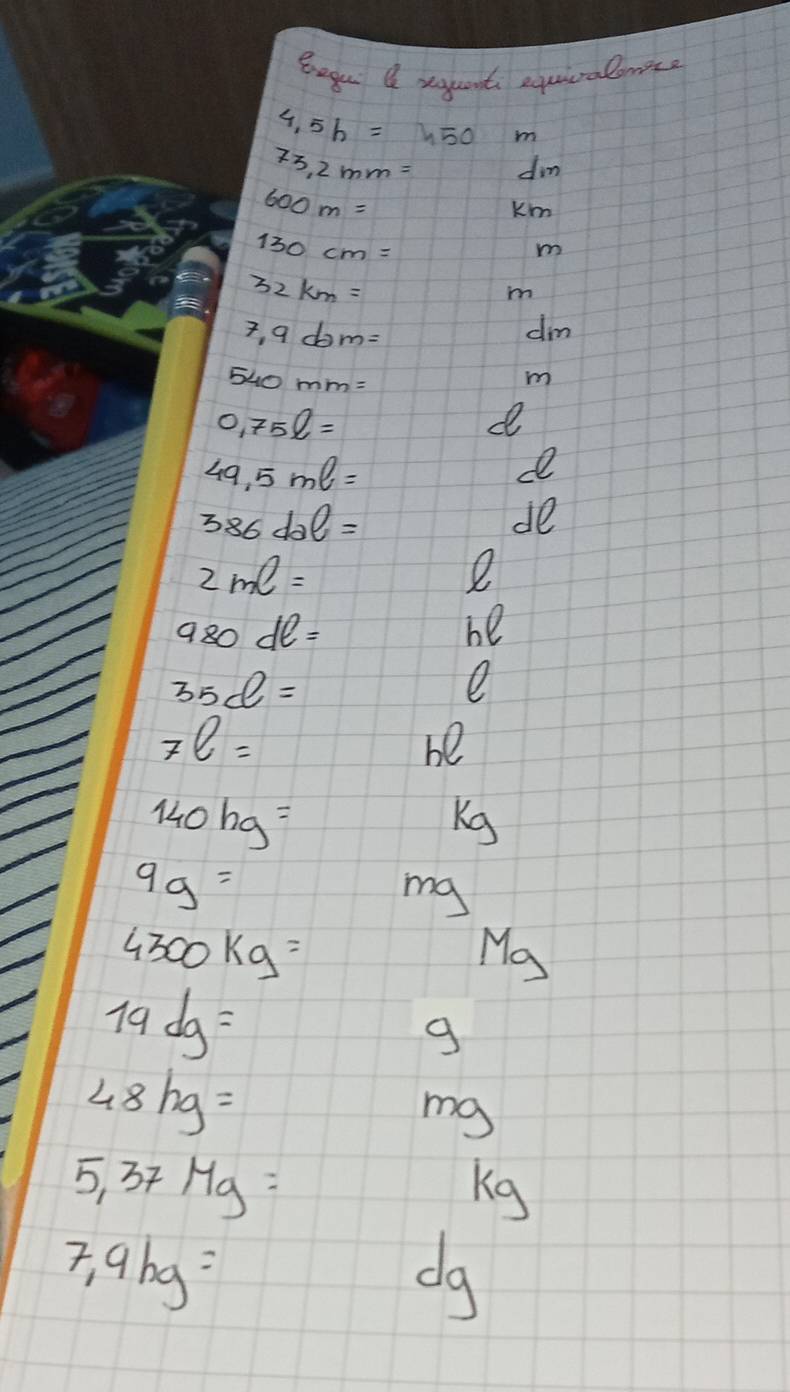 Esegui le seguenti equivalenze
4,5h = 450 m
73,2 mm = dm
600 m = km
130 cm = m
32 km = m
7,9 dam = dm
540 mm = m
0,75 l = cl
49,5 ml = cl
386 dal = dl
2 ml = l
980 dl = hl
35 cl = l
7 l = hl
140 hg = Kg
9 g = mg
4300 Kg = Mg
19 dg = g
48 hg = mg
5,37 Mg = kg
7,9 hg = dg
freedom
NOISE